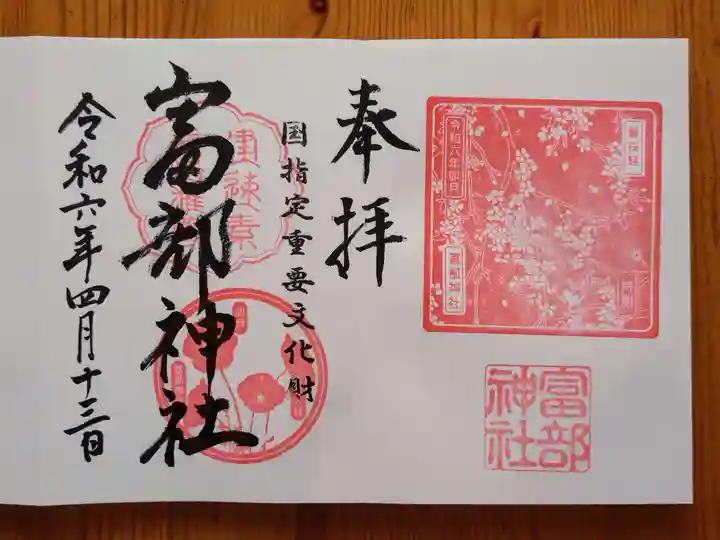 令和六年四月
富部神社
富部
神社
奉拝
国指定重要文化財
富部神社
令和六年四月十三日